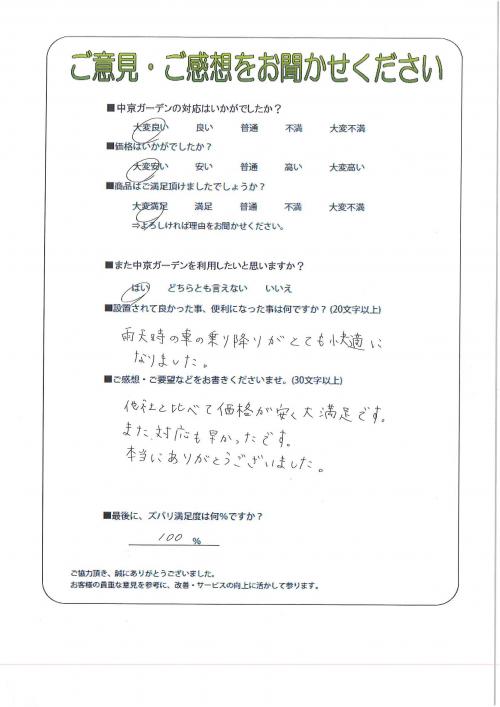 ご意見・ご感想をお聞かせください
■中京ガーデンの対応はいかがでしたか？
大変良い 良い 普通 不満 大変不満
■価格はいかがでしたか？
大変安い 安い 普通 高い 大変高い
■商品はご満足頂けましたでしょうか？
大変満足 満足 普通 不満 大変不満
⇒よろしければ理由をお聞かせください。
■また中京ガーデンを利用したいと思いますか？
はい どちらとも言えない いいえ
■設置されて良かった事、便利になった事は何ですか？(20文字以上)
雨天時の車の乗り降りがとても快適に
なりました。
■ご感想・ご要望などをお書きくださいませ。(30文字以上)
他社と比べて価格が安く大満足です。
また、対応も早かったです。
本当にありがとうございました。
■最後に、ズバリ満足度は何%ですか？
100 %
ご協力頂き、誠にありがとうございました。
お客様の貴重な意見を参考に、改善・サービスの向上に活かして参ります。